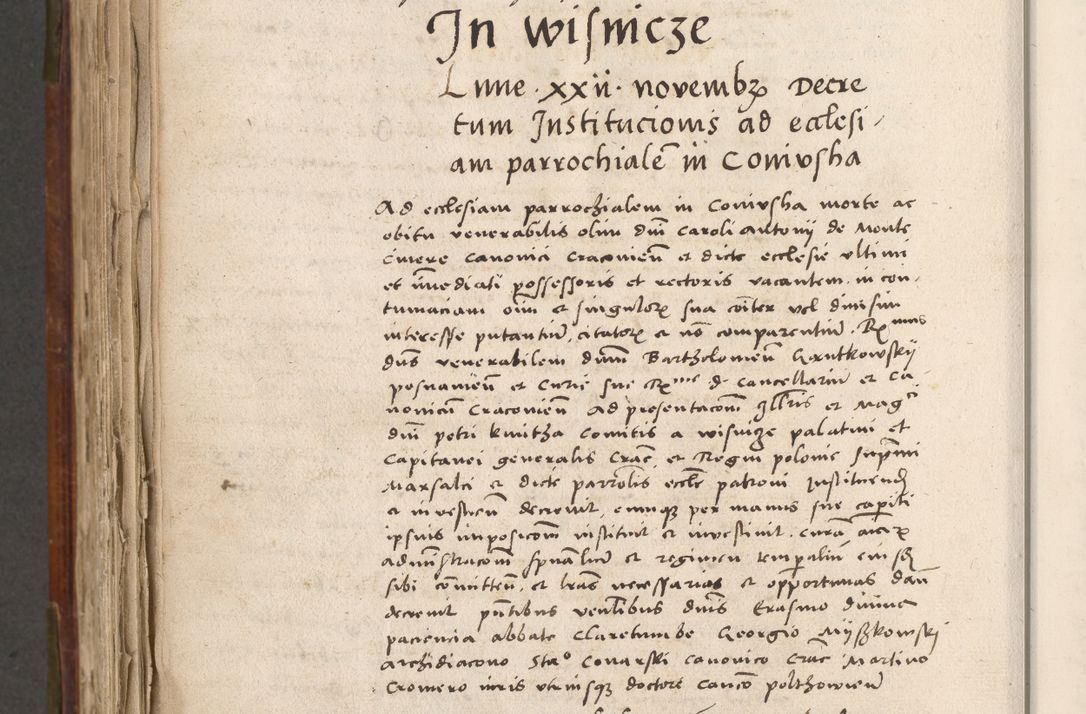 In wisnicze
Lune · xxii · novembr̃ Decre
tum Institucionis ad ecclesi
am parrochialẽ in Coniusha
Ad ecclesiam parrochialem in Coniusha morte ac
obitu venerabilis olim dni Caroli Antonij de Monte
Canonici Cracovien̄ et dicte ecclesie ultimi
et īmediati possessoris et rectoris vacantem in con
tumaciam oīm et singulor̃ sua cōiter vel divisim
interesse putantiū citator̃ et nō comparentiū R̃mus
dn̄s venerabilem dn̄m Bartholomeū Gantkowskij
posnanien̄ et Curie sue R̃me Cancellariū et Ca
nonicū Cracovien̄ Ad presentacōm Illr̄is et Magci
dn̄i petri kmitha Comitis a wisnicze palatini et
Capitanei generalis Crac̄ et Regni polonie supremi
Marsalci et dicte parrōlis eccle patroni Instituend̄
et investien̄ decrevit, eumq̃ per manus sue capiti
ipsius imposicōm instituit et investivit, curā aīar̃
administracōm spūaliū et regimen temporaliū eiusd̃
sibi cōmitten̄ et lrās necessarias et opportunas dari
decrevit pn̄tibus ven̄libus dn̄is Erasmo divina
paciencia abbate Claretumbe Georgio Myszkowski
Archidiacono Stao Conarski Canonico Crac̄ Martino
Cromero iuris utriusq̃ doctore